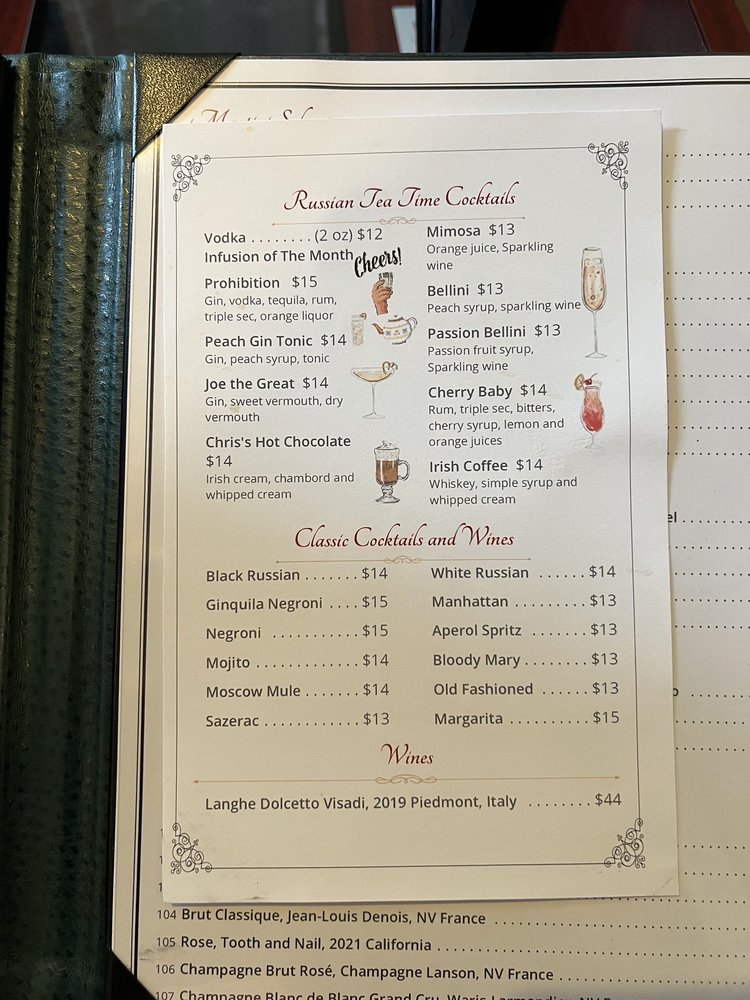 Russian Tea Time Cocktails
Vodka ........ (2 oz) $12
Infusion of The Month
Cheers!
Prohibition $15
Gin, vodka, tequila, rum,
triple sec, orange liquor
Peach Gin Tonic $14
Gin, peach syrup, tonic
Joe the Great $14
Gin, sweet vermouth, dry
vermouth
Chris's Hot Chocolate
$14
Irish cream, chambord and
whipped cream
Mimosa $13
Orange juice, Sparkling
wine
Bellini $13
Peach syrup, sparkling wine
Passion Bellini $13
Passion fruit syrup,
Sparkling wine
Cherry Baby $14
Rum, triple sec, bitters,
cherry syrup, lemon and
orange juices
Irish Coffee $14
Whiskey, simple syrup and
whipped cream
Classic Cocktails and Wines
Black Russian ....... $14
Ginquila Negroni .... $15
Negroni ......... $15
Mojito ............ $14
Moscow Mule ....... $14
Sazerac ........... $13
White Russian ...... $14
Manhattan ......... $13
Aperol Spritz ....... $13
Bloody Mary ........ $13
Old Fashioned ...... $13
Margarita .......... $15
Wines
Langhe Dolcetto Visadi, 2019 Piedmont, Italy ........ $44
104 Brut Classique, Jean-Louis Denois, NV France
105 Rose, Tooth and Nail, 2021 California
106 Champagne Brut Rosé, Champagne Lanson, NV France
107 Champagne Blanc de Blanc Grand Cru,